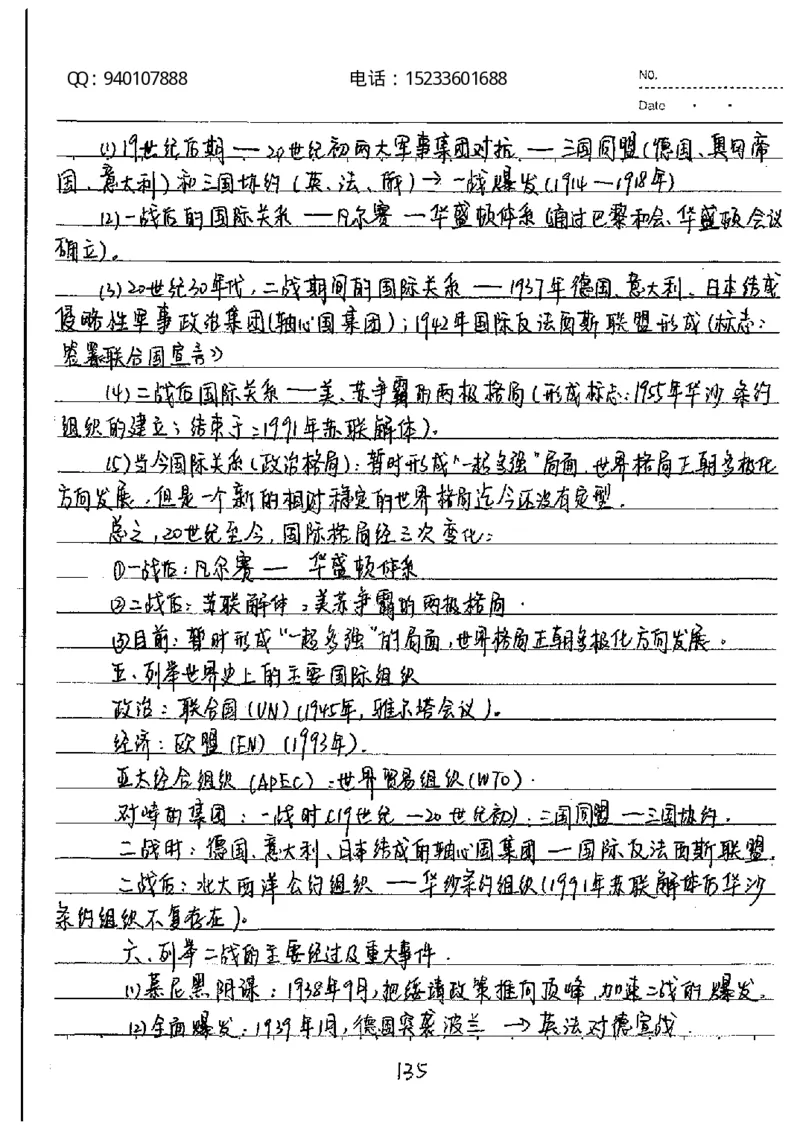 QQ：940107888 电话：15233601688 NO.
Date
(1)19世纪后期一20世纪初两大军事集团对抗 — 三国同盟(德国、奥匈帝
国、意大利)和三国协约(英、法、俄)→一战爆发(1914—1918年)
(2)一战后的国际关系 —凡尔赛—华盛顿体系(通过巴黎和会、华盛顿会议
确立)。
(3)20世纪30年代，二战期间的国际关系 — 1937年德国、意大利、日本结成
侵略性军事政治集团(轴心国集团)；1942年国际反法西斯联盟形成(标志：
签署联合国宣言》)
(4)二战后国际关系—美、苏争霸的两极格局(形成标志：1955年华沙条约
组织的建立；结束于：1991年苏联解体)。
(5)当今国际关系(政治格局)：暂时形成“一超多强”局面，世界格局正朝多极化
方向发展，但是一个新的相对稳定的世界格局迄今还没有定型．
总之，20世纪至今，国际格局经三次变化：
①一战后：凡尔赛 — 华盛顿体系
②二战后：苏联解体：美苏争霸的两极格局．
③目前：暂时形成“一超多强”的局面，世界格局正朝多极化方向发展。
五、列举世界史上的主要国际组织
政治：联合国(UN)(1945年，雅尔塔会议)。
经济：欧盟(EN)(1993年)．
亚太经合组织(APEC)：世界贸易组织(WTO)．
对峙的集团：一战时(19世纪—20世纪初)：三国同盟—三国协约．
二战时：德国、意大利、日本结成的轴心国集团—国际反法西斯联盟．
二战后：北大西洋公约组织 — 华沙条约组织(1991年苏联解体后华沙
条约组织不复存在)。
六、列举二战的主要经过及重大事件．
(1)慕尼黑阴谋：1938年9月，把绥靖政策推向顶峰，加速二战的爆发。
(2)全面爆发：1939年1月，德国突袭波兰 → 英法对德宣战．
135